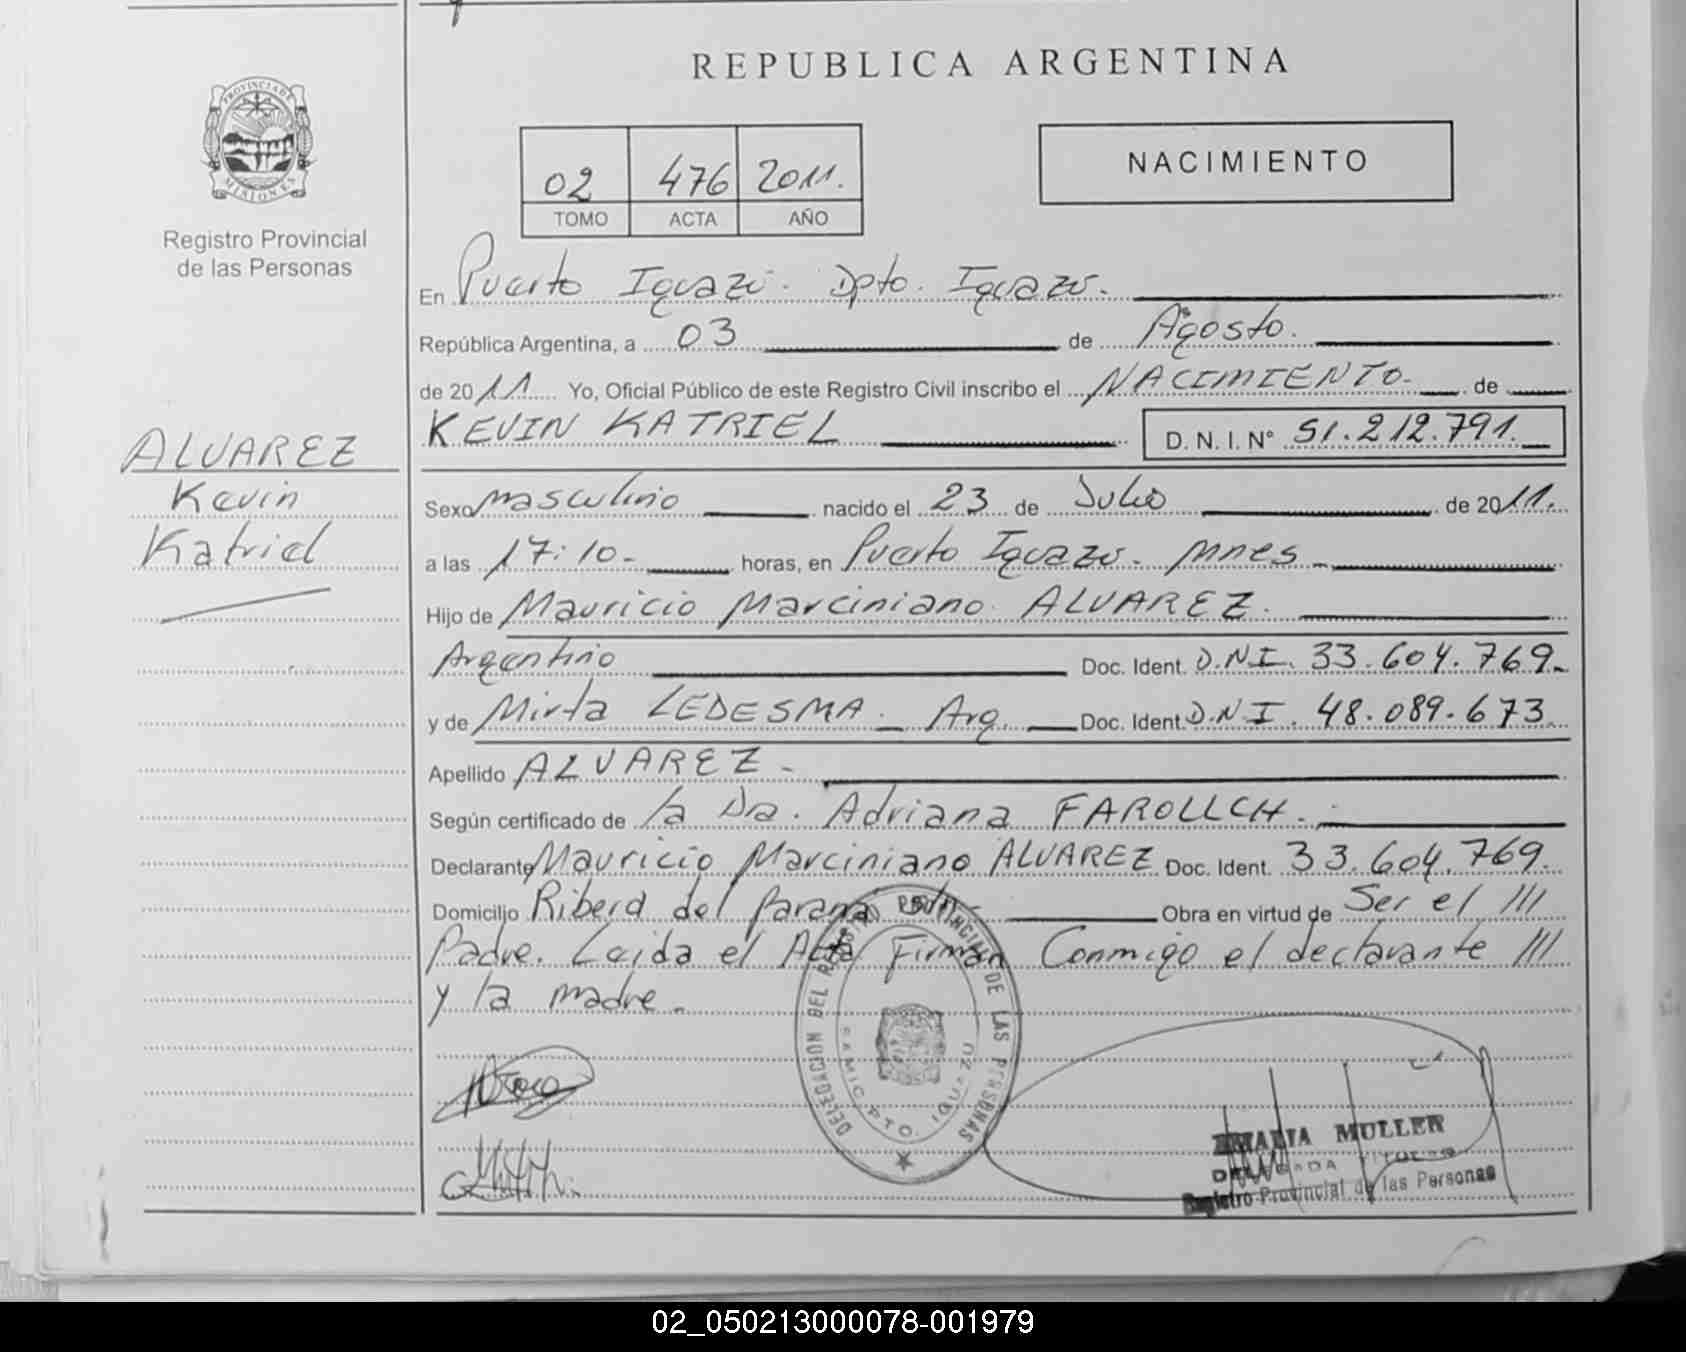 REPUBLICA ARGENTINA
PROVINCIA DE
MISIONES
Registro Provincial
de las Personas
02 476 2011.
TOMO ACTA AÑO
NACIMIENTO
En Puerto Iguazú. Dpto. Iguazú.
República Argentina, a 03 de Agosto.
de 2011 Yo, Oficial Público de este Registro Civil inscribo el NACIMIENTO de
KEVIN KATRIEL D. N. I. Nº 51.212.791.
ALVAREZ
Kevin
Katriel
Sexo masculino nacido el 23 de Julio de 2011.
a las 17:10 horas, en Puerto Iguazú. Mnes
Hijo de Mauricio Marciniano ALVAREZ.
Argentino Doc. Ident. D.N.I. 33.604.769
y de Mirta LEDESMA. Arg. Doc. Ident. D.N.I. 48.089.673
Apellido ALVAREZ
Según certificado de la Dra. Adriana
Declarante Mauricio Marciniano ALVAREZ Doc. Ident. 33.604.769.
Domicilio Ribera del Paraná Obra en virtud de Ser el ///
Padre. Leida el Acta Firman Conmigo el declarante ///
y la madre.
DELEGACION DEL REGISTRO PROVINCIAL DE LAS PERSONAS
DPTO. IGUAZU
MULLER
DELEGADA TITULAR
Registro Provincial de las Personas
02_050213000078-001979